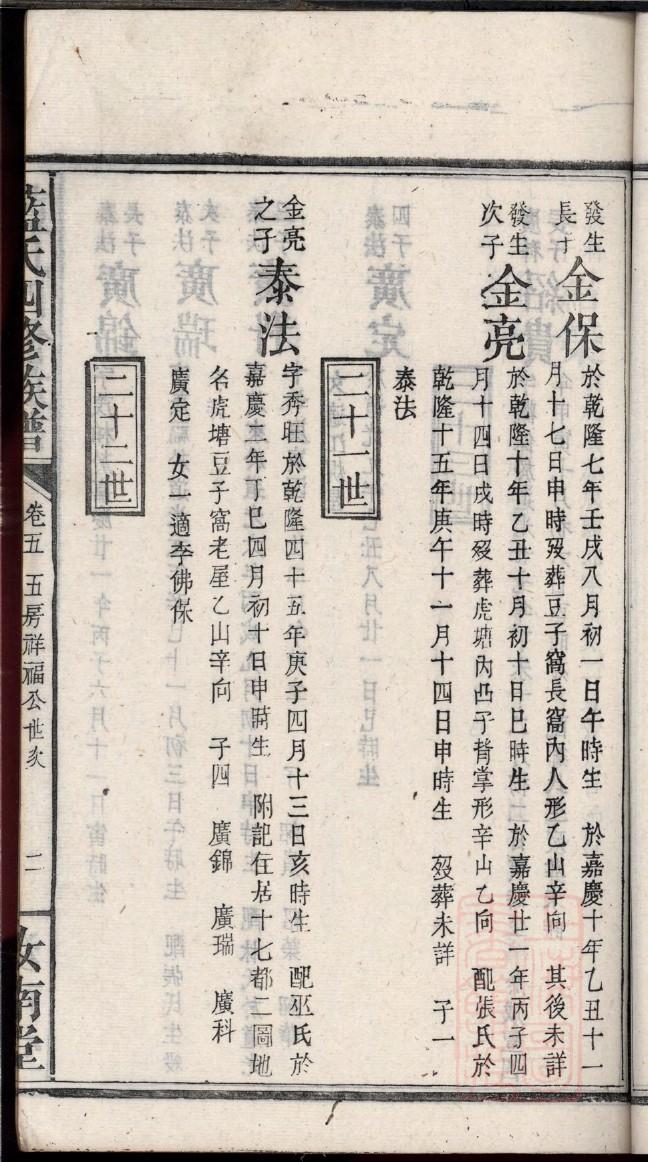 發生長子 金保 於乾隆七年壬戌八月初一日午時生 於嘉慶十年乙丑十一
月十七日申時歿葬豆子窩長窩內人形乙山辛向 其後未詳
發生次子 金亮 於乾隆十年乙丑十月初十日巳時生 於嘉慶廿一年丙子四
月十四日戌時歿葬虎塘內凸子背掌形辛山乙向 配張氏於
乾隆十五年庚午十一月十四日申時生 歿葬未詳 子一
泰法
二十一世
金亮之子 泰法 字秀旺於乾隆四十五年庚子四月十三日亥時生 配巫氏於
嘉慶二年丁巳四月初十日申時生 附記住居十七都二圖地
名虎塘豆子窩老屋乙山辛向 子四 廣錦 廣瑞 廣科
廣定 女一適李佛保
二十二世
藍氏四修族譜 卷五 五房祥福公世系 二 汝南堂